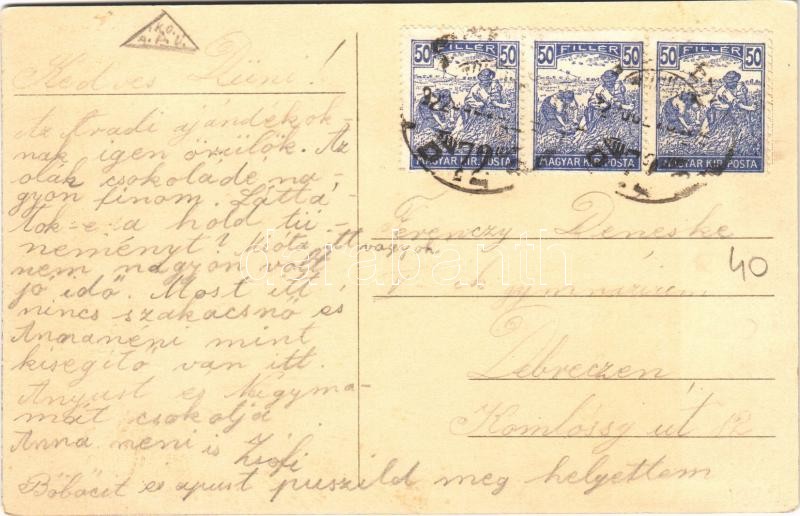 Kedves Düni!
Az Aradi ajándékok-
nak igen örülök. Az
oláh csokoláde na-
gyon finom. Láttá-
tok-e a hold tü-
neményt? Mióta itt vagyok
nem nagyon volt
jó idő. Most itt
nincs szakácsnő és
Annanéni mint
kisegítő van itt.
Anyust és Nagyma-
mát csokolja
Anna neni is Zsófi
Böböcit es apust puszild meg helyettem
50 FILLÉR 50
MAGYAR KIR. POSTA
50 FILLÉR 50
MAGYAR KIR. POSTA
50 FILLÉR 50
MAGYAR KIR. POSTA
Ferenczy Deneske
40
Debreczen
Komlóssy út 12
darabanth